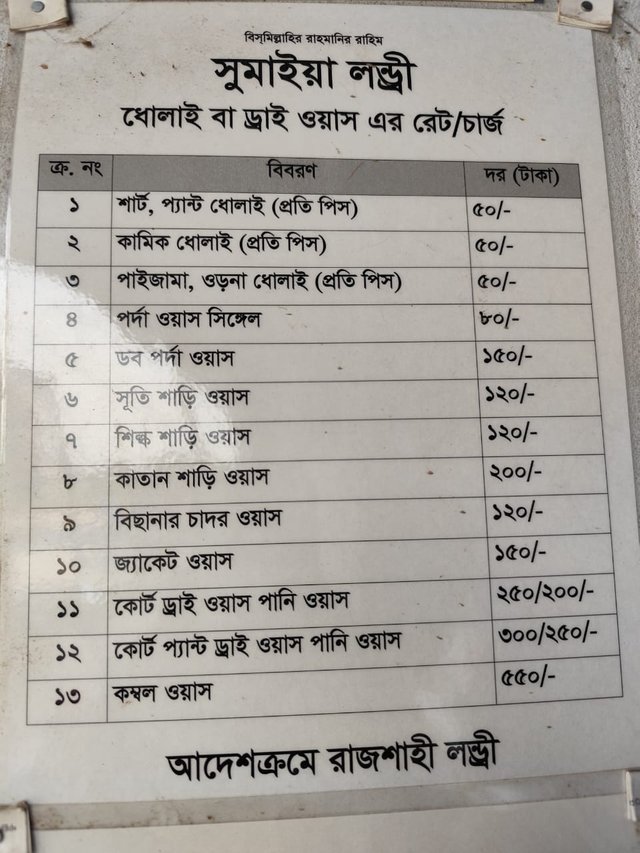 বিস্‌মিল্লাহির রাহমানির রাহিম
সুমাইয়া লন্ড্রী
ধোলাই বা ড্রাই ওয়াস এর রেট/চার্জ
ক্র. নং বিবরণ দর (টাকা)
১ শার্ট, প্যান্ট ধোলাই (প্রতি পিস) ৫০/-
২ কামিক ধোলাই (প্রতি পিস) ৫০/-
৩ পাইজামা, ওড়না ধোলাই (প্রতি পিস) ৫০/-
৪ পর্দা ওয়াস সিঙ্গেল ৮০/-
৫ ডব পর্দা ওয়াস ১৫০/-
৬ সূতি শাড়ি ওয়াস ১২০/-
৭ শিল্ক শাড়ি ওয়াস ১২০/-
৮ কাতান শাড়ি ওয়াস ২০০/-
৯ বিছানার চাদর ওয়াস ১২০/-
১০ জ্যাকেট ওয়াস ১৫০/-
১১ কোর্ট ড্রাই ওয়াস পানি ওয়াস ২৫০/২০০/-
১২ কোর্ট প্যান্ট ড্রাই ওয়াস পানি ওয়াস ৩০০/২৫০/-
১৩ কম্বল ওয়াস ৫৫০/-
আদেশক্রমে রাজশাহী লন্ড্রী